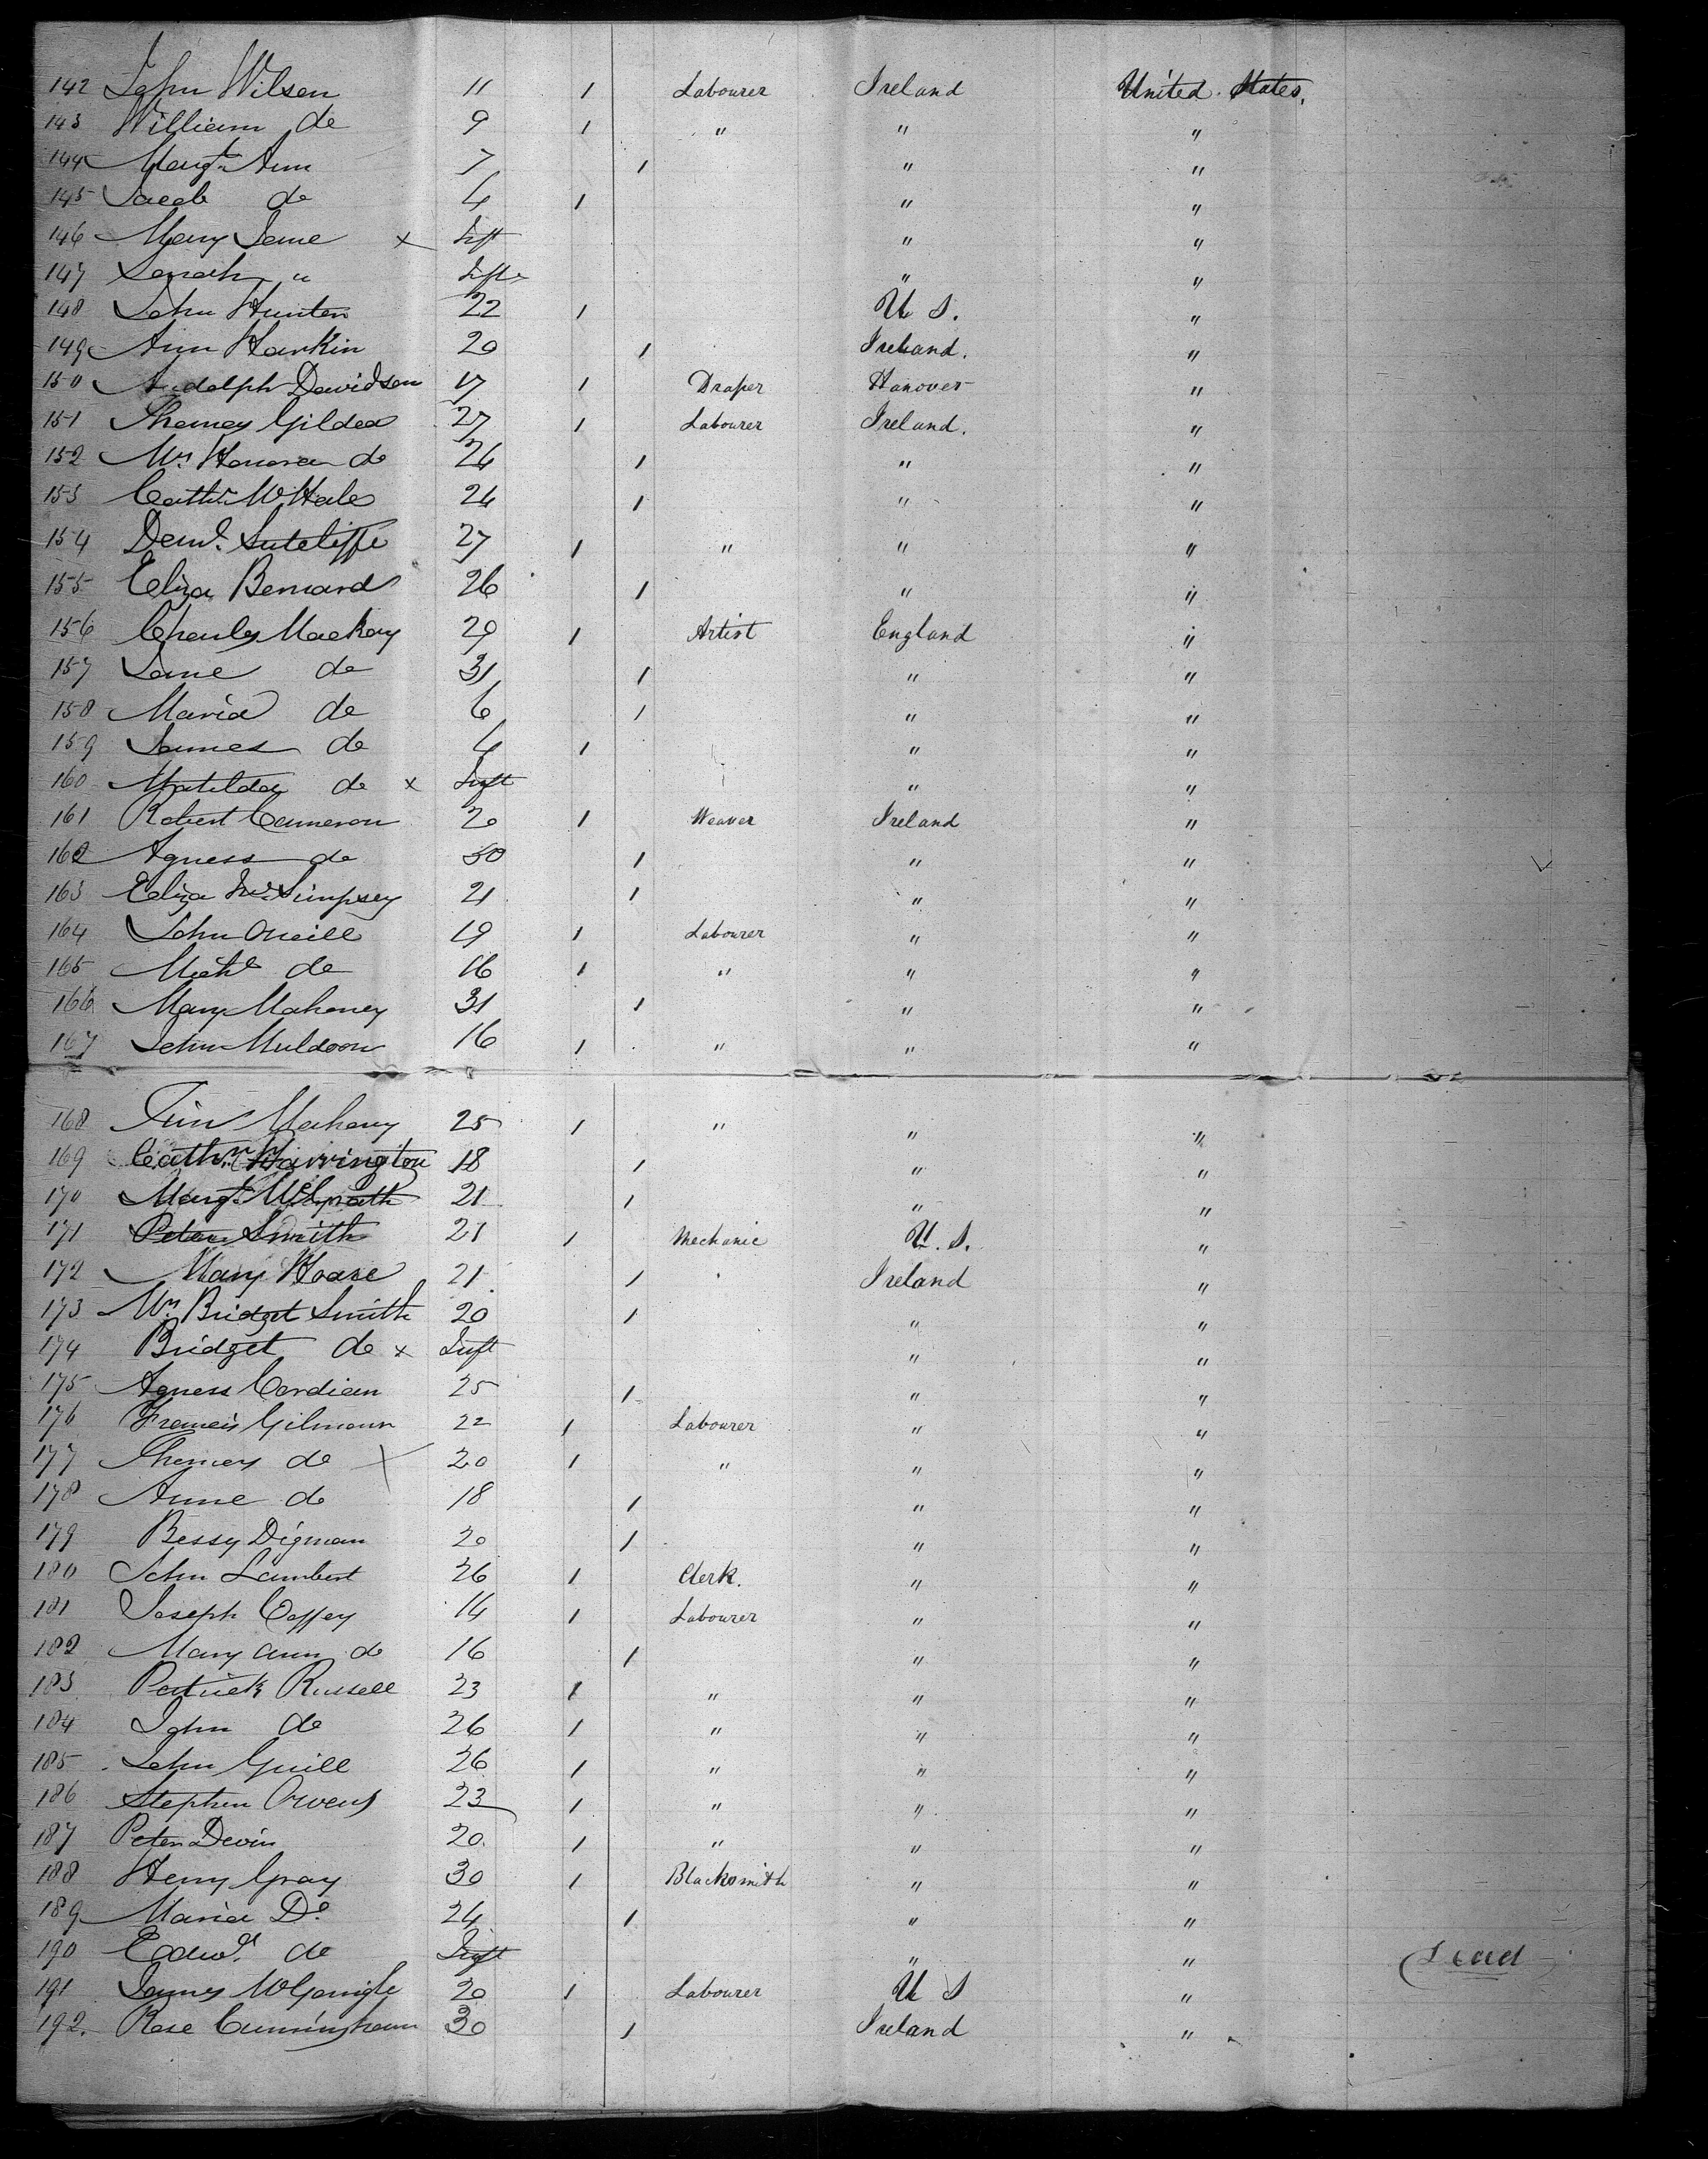 142 John Wilson 11 1 Labourer Ireland United States.
143 William do 9 1 " " "
144 Margt. Ann 7 1 " "
145 Jacob do 4 1 " "
146 Mary Jane x Inft " "
147 Sarah " Inft " "
148 John Hunter 22 1 U S. "
149 Ann Harkin 20 1 Ireland. "
150 Rudolph Davidson 17 1 Draper Hanover "
151 Thomas Gildea 27 1 Labourer Ireland. "
152 Mrs. Honora do 26 1 " "
153 Cathn. McHale 24 1 " "
154 Sutcliffe 27 1 " " "
155 Eliza Bernard 26 1 " "
156 Charles Mackay 29 1 Artist England "
157 Jane do 31 1 " "
158 Maria do 6 1 " "
159 James do 4 1 " "
160 Matilda do x Inft " "
161 Robert Cameron 20 1 Weaver Ireland "
162 Agness do 50 1 " "
163 Eliza 21 1 " "
164 John Oneill 19 1 Labourer " "
165 Michl do 16 1 " " "
166 Mary Mahoney 31 1 " "
167 John Muldoon 16 1 " " "
168 Tim Mahony 25 1 " " "
169 Cathn. Harrington 18 1 " "
170 Margt. McGrath 21 1 " "
171 Peter Smith 21 1 Mechanic U. S. "
172 Mary Hoare 21 1 Ireland "
173 Mrs. Bridget Smith 20 1 " "
174 Bridget do x Inft " "
175 Agness Cordian 25 1 " "
176 Francis Gilmour 22 1 Labourer " "
177 Thomas do x 20 1 " " "
178 Anne do 18 1 " "
179 Bessy Digman 20 1 " "
180 John Lambert 26 1 Clerk. " "
181 Joseph Coffey 14 1 Labourer " "
182 Mary Ann do 16 1 " "
183 Patrick Russell 23 1 " " "
184 John do 26 1 " " "
185 John Guill 26 1 " " "
186 Stephen Owens 23 1 " " "
187 Peter Devin 20 1 " " "
188 Henry Gray 30 1 Blacksmith " "
189 Maria Do 24 1 " "
190 Edwd. do Inft " " Dead
191 James McGonigle 20 1 Labourer U S "
192. Rose Cunningham 30 1 Ireland "